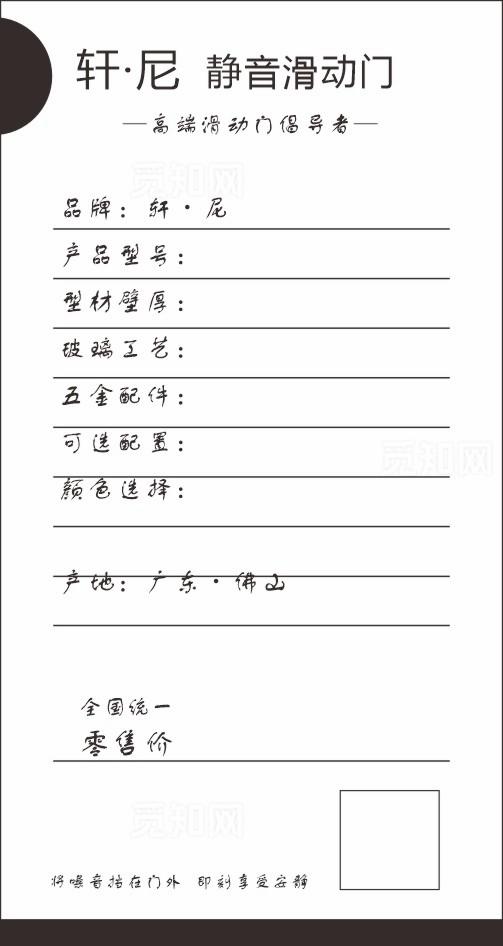 轩·尼 静音滑动门
—高端滑动门倡导者—
品牌：轩·尼
产品型号：
型材壁厚：
玻璃工艺：
五金配件：
可选配置：
颜色选择：
产地：广东·佛山
全国统一
零售价
将噪音挡在门外 即刻享受安静
觅知网
觅知网
觅知网